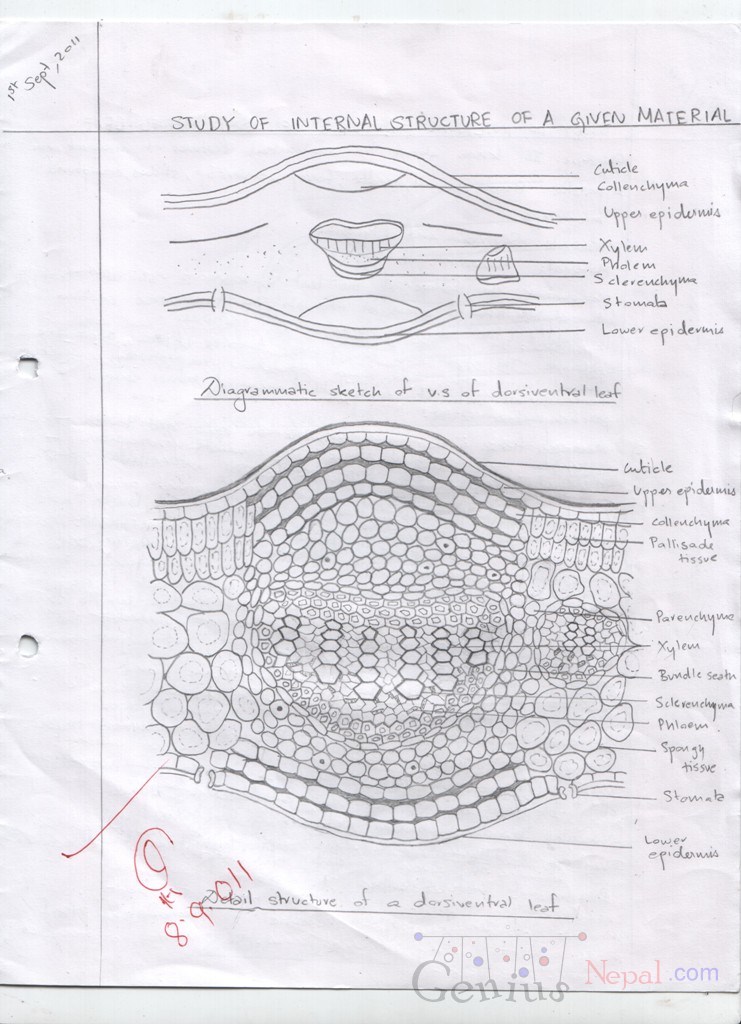 1st Sept, 2011
STUDY OF INTERNAL STRUCTURE OF A GIVEN MATERIAL
Cuticle
Collenchyma
Upper epidermis
Xylem
Pholem
Sclerenchyma
Stomata
Lower epidermis
Diagrammatic sketch of v.s of dorsiventral leaf
Cuticle
Upper epidermis
Collenchyma
Pallisade
tissue
Parenchyma
Xylem
Bundle seath
Sclerenchyma
Phloem
Spongy
tissue
Stomata
Lower
epidermis
8.9.011
Detail structure of a dorsiventral leaf
Genius Nepal.com